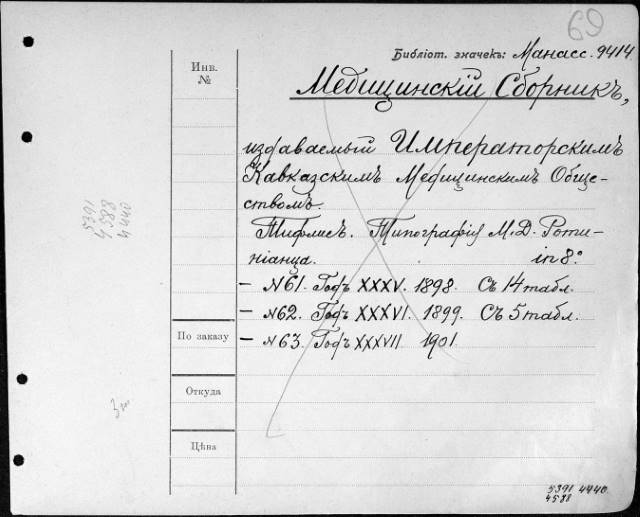 69
Библіот. значекъ: Манасс. 9414.
Инв.
№
Медицинскій Сборникъ,
издаваемый Императорскимъ
Кавказскимъ Медицинскимъ Обще-
ствомъ.
Тифлисъ. Типографія М. Д. Роти-
ніанца. in 8°.
– N 61. Годъ XXXV. 1898. Съ 14 табл.
– N 62. Годъ XXXVI. 1899. Съ 5 табл.
– N 63. Годъ XXXVII 1901.
По заказу
Откуда
Цѣна
5391
4588
4440
5391 4440.
4588